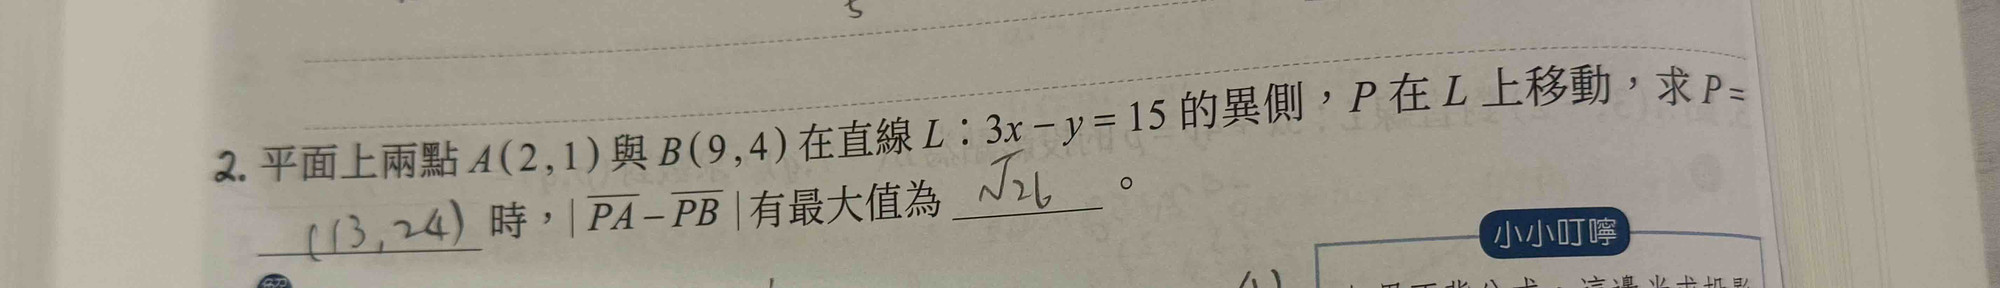 5
2. 平面上兩點 A(2,1) 與 B(9,4) 在直線 L：3x－y＝15 的異側，P 在 L 上移動，求 P=
(13,24) 時，| PA－PB | 有最大值為 √26 。
小小叮嚀
(1)